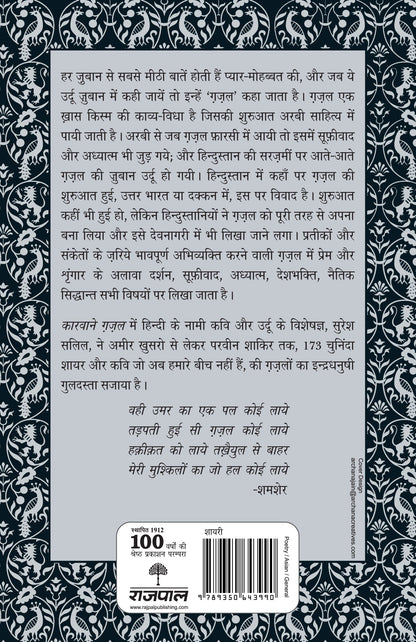 हर ज़ुबान से सबसे मीठी बातें होती हैं प्यार-मोहब्बत की, और जब ये
उर्दू ज़ुबान में कही जायें तो इन्हें ‘ग़ज़ल’ कहा जाता है। ग़ज़ल एक
ख़ास किस्म की काव्य-विधा है जिसकी शुरुआत अरबी साहित्य में
पायी जाती है। अरबी से जब ग़ज़ल फ़ारसी में आयी तो इसमें सूफ़ीवाद
और अध्यात्म भी जुड़ गये; और हिन्दुस्तान की सरज़मीं पर आते-आते
ग़ज़ल की ज़ुबान उर्दू हो गयी। हिन्दुस्तान में कहाँ पर ग़ज़ल की
शुरुआत हुई, उत्तर भारत या दक्कन में, इस पर विवाद है। शुरुआत
कहीं भी हुई हो, लेकिन हिन्दुस्तानियों ने ग़ज़ल को पूरी तरह से अपना
बना लिया और इसे देवनागरी में भी लिखा जाने लगा। प्रतीकों और
संकेतों के ज़रिये भावपूर्ण अभिव्यक्ति करने वाली ग़ज़ल में प्रेम और
शृंगार के अलावा दर्शन, सूफ़ीवाद, अध्यात्म, देशभक्ति, नैतिक
सिद्धान्त सभी विषयों पर लिखा जाता है।
कारवाने ग़ज़ल में हिन्दी के नामी कवि और उर्दू के विशेषज्ञ, सुरेश
सलिल, ने अमीर खुसरो से लेकर परवीन शाकिर तक, 173 चुनिंदा
शायर और कवि जो अब हमारे बीच नहीं हैं, की ग़ज़लों का इन्द्रधनुषी
गुलदस्ता सजाया है।
वही उमर का एक पल कोई लाये
तड़पती हुई सी ग़ज़ल कोई लाये
हक़ीक़त को लाये तख़ैयुल से बाहर
मेरी मुश्किलों का जो हल कोई लाये
-शमशेर
Cover Design
archanajain@archanacreatives.com
स्थापित 1912
100 वर्षों की
श्रेष्ठ प्रकाशन परम्परा
राजपाल
www.rajpalpublishing.com
शायरी
9 789350 643990
Poetry / Asian / General